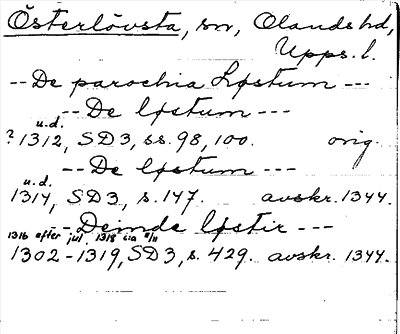 Österlövsta, sn, Olands hd,
Upps. l.
-- De parochia Løstum ---
-- De løstum ---
u.d.
? 1312, SD3, ss. 98, 100. orig.
-- De løstum ---
u.d.
1314, SD3, s. 147. avskr. 1344.
-- Deinde løstir ---
1316 efter jul. 1318
1302-1319, SD3, s. 429. avskr. 1344.